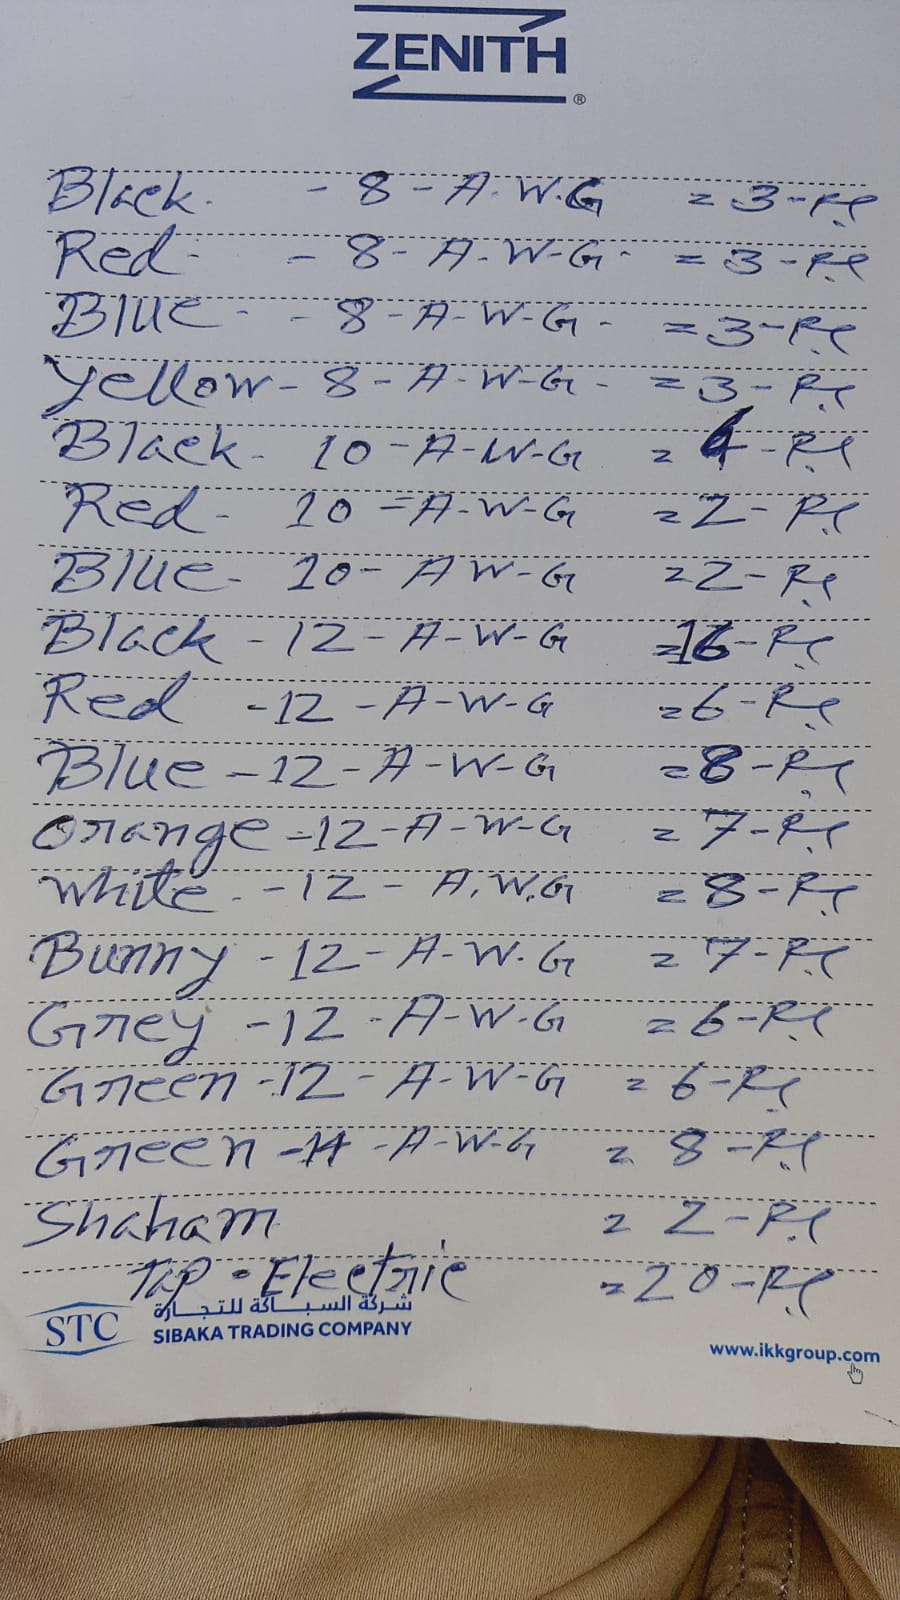 ZENITH
®
Black. - 8 - A. W. G = 3 - Pc
Red - - 8 - A - W - G - = 3 - Pc
Blue - - 8 - A - W - G - = 3 - Pc
Yellow - 8 - A - W - G - = 3 - Pc
Black - 10 - A - W - G = - Pc
Red - 10 = A - W - G = 2 - Pc
Blue - 10 - A W - G = 2 - Pc
Black - 12 - A - W - G = 16 - Pc
Red - 12 - A - W - G = 6 - Pc
Blue - 12 - A - W - G = 8 - Pc
Orange - 12 - A - W - G = 7 - Pc
White. - 12 - A. W. G = 8 - Pc
Bunny - 12 - A - W. G = 7 - Pc
Grey - 12 - A - W - G = 6 - Pc
Green - 12 - A - W - G = 6 - Pc
Green - 14 - A - W - G = 8 - Pc
Shaham = 2 - Pc
Tap - Electric = 20 - Pc
STC
شركة السباكة للتجارة
SIBAKA TRADING COMPANY
www.ikkgroup.com